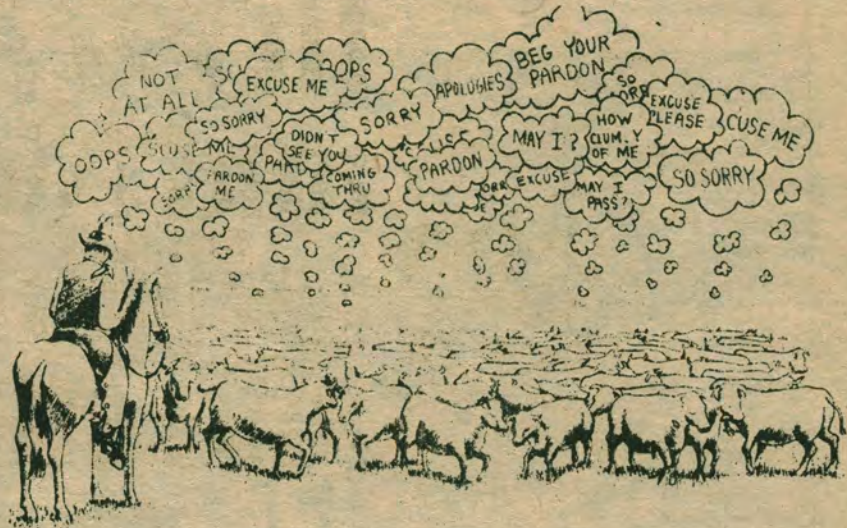 NOT
AT ALL
EXCUSE ME
OOPS
APOLOGIES
BEG YOUR
PARDON
SO
EXCUSE
PLEASE
CUSE ME
OOPS
SCUSE
ME
SO SORRY
DIDN'T
SEE YOU
SORRY
PARDON
MAY I?
HOW
CLUM.Y
OF ME
SO SORRY
SORRY
PARDON
ME
COMING
THRU
EXCUSE
MAY I
PASS?